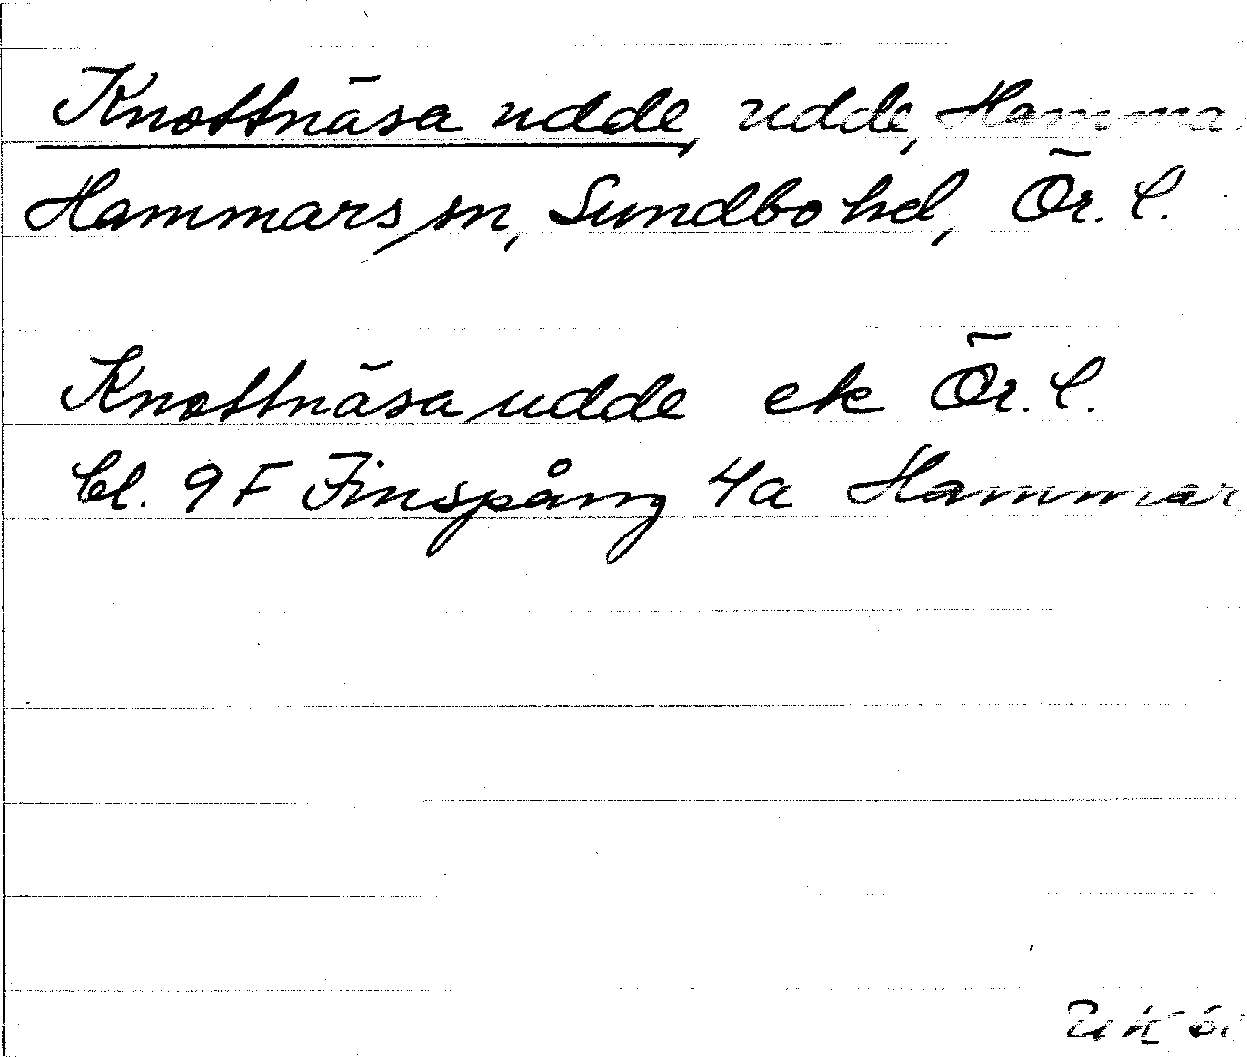 Knottnäsa udde, udde, Hamma
Hammars sn, Sundbo hd, Ör. l.
Knottnäsa udde ek Ör. l.
bl. 9F Finspång 4a Hammar